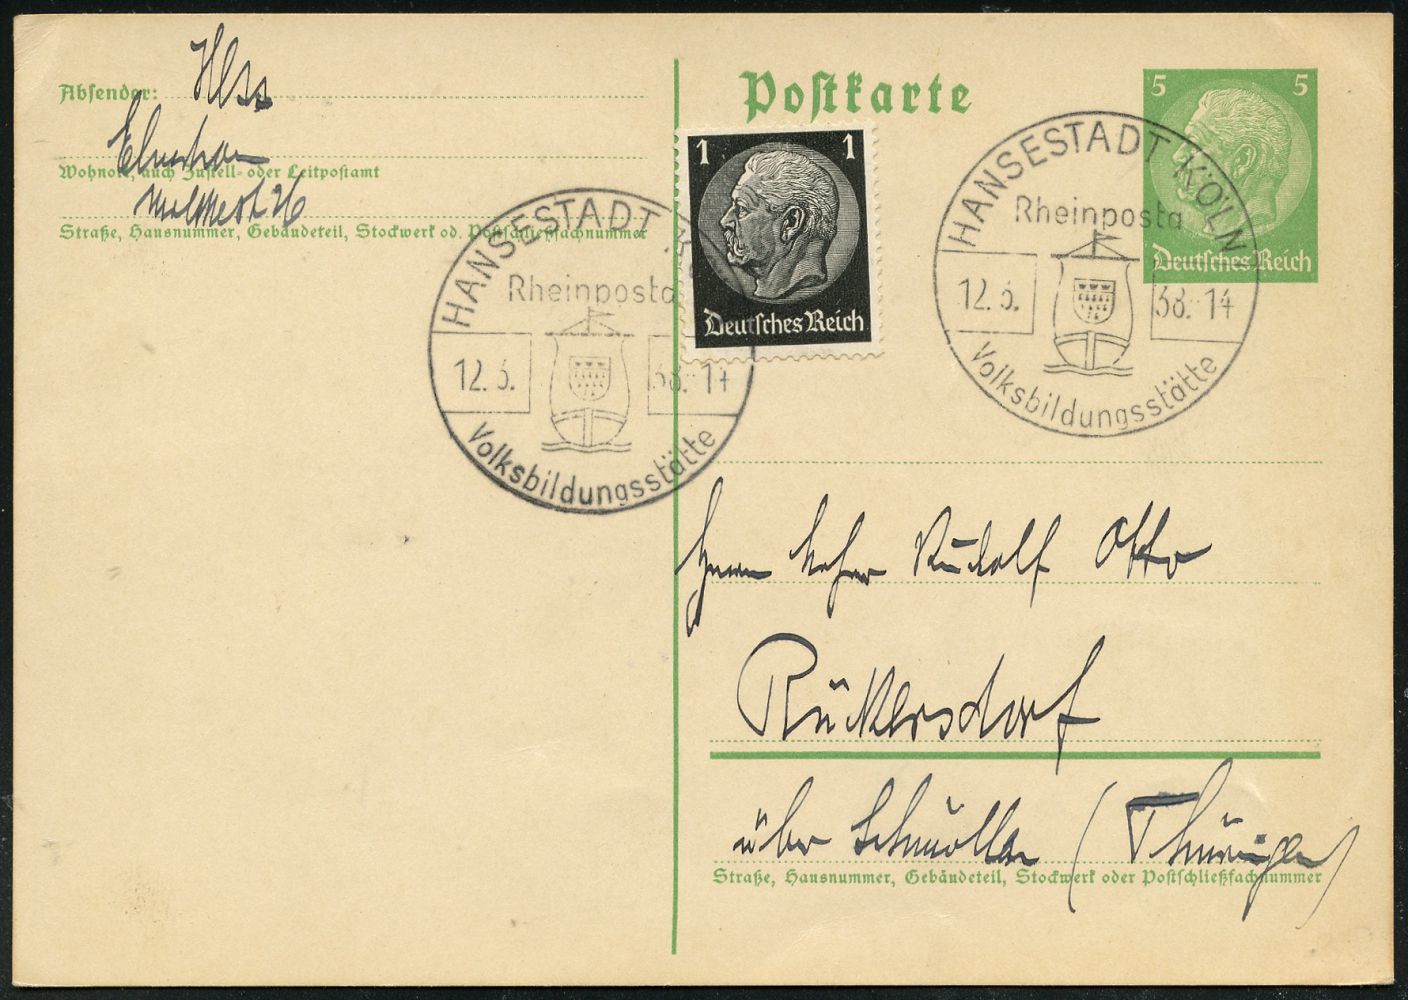 Absender:
Wohnort, auch Zustell- oder Leitpostamt
Straße, Hausnummer, Gebäudeteil, Stockwerk od. Postschließfachnummer
Postkarte
1 1
Deutsches Reich
5 5
Deutsches Reich
HANSESTADT KÖLN
Rheinposta
12.3. 38.-14
Volksbildungsstätte
HANSESTADT KÖLN
Rheinposta
12.3. 38.-14
Volksbildungsstätte
Herrn Rudolf Otto
Rückersdorf
über Schmölln (Thüringen)
Straße, Hausnummer, Gebäudeteil, Stockwerk oder Postschließfachnummer